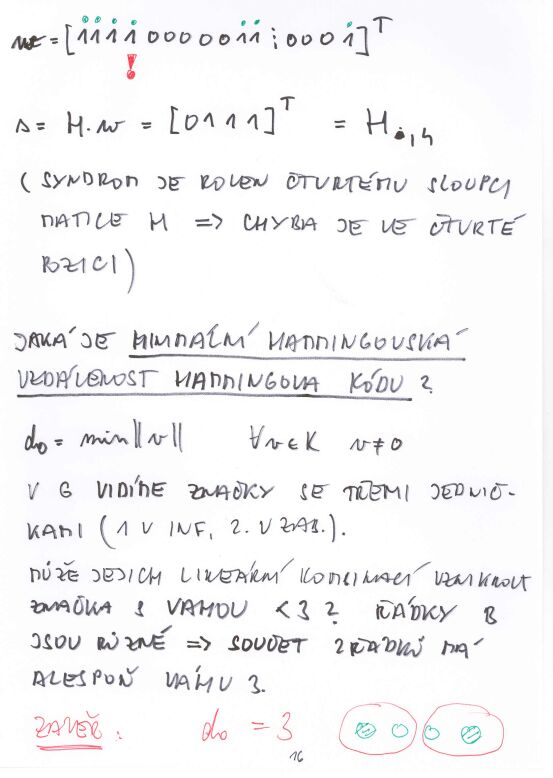 w = [1 1 1 1 0 0 0 0 0 1 1 ; 0 0 0 1]ᵀ
!
s = H·w = [0 1 1 1]ᵀ = H•,4
(SYNDROM JE ROVEN ČTVRTÉMU SLOUPCI
MATICE H => CHYBA JE VE ČTVRTÉ
POZICI)
JAKÁ JE MINIMÁLNÍ HAMMINGOVSKÁ
VZDÁLENOST HAMMINGOVA KÓDU?
d₀ = min‖v‖ ∀v∈K v≠0
V G VIDÍME ZNAČKY SE TŘEMI JEDNIČ-
KAMI (1 V INF, 2. V ZAB.).
MŮŽE JEJICH LINEÁRNÍ KOMBINACÍ VZNIKNOUT
ZNAČKA S VAHOU <3? ŘÁDKY B
JSOU RŮZNÉ => SOUČET 2 ŘÁDKŮ MÁ
ALESPOŇ VÁHU 3.
ZÁVĚR: d₀ = 3
16